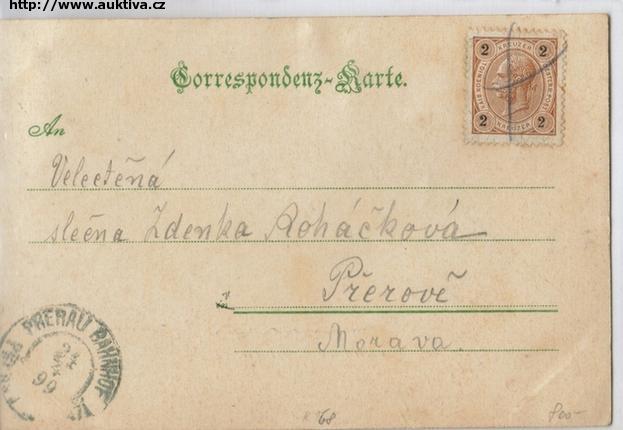 http://www.auktiva.cz
Correspondenz-Karte.
2 KREUZER 2
2 KREUZER 2
An
Velectěná
slečna Zdenka Roháčková
v Přerově
in
Morava.
PRERAU BAHNHOF
99
68